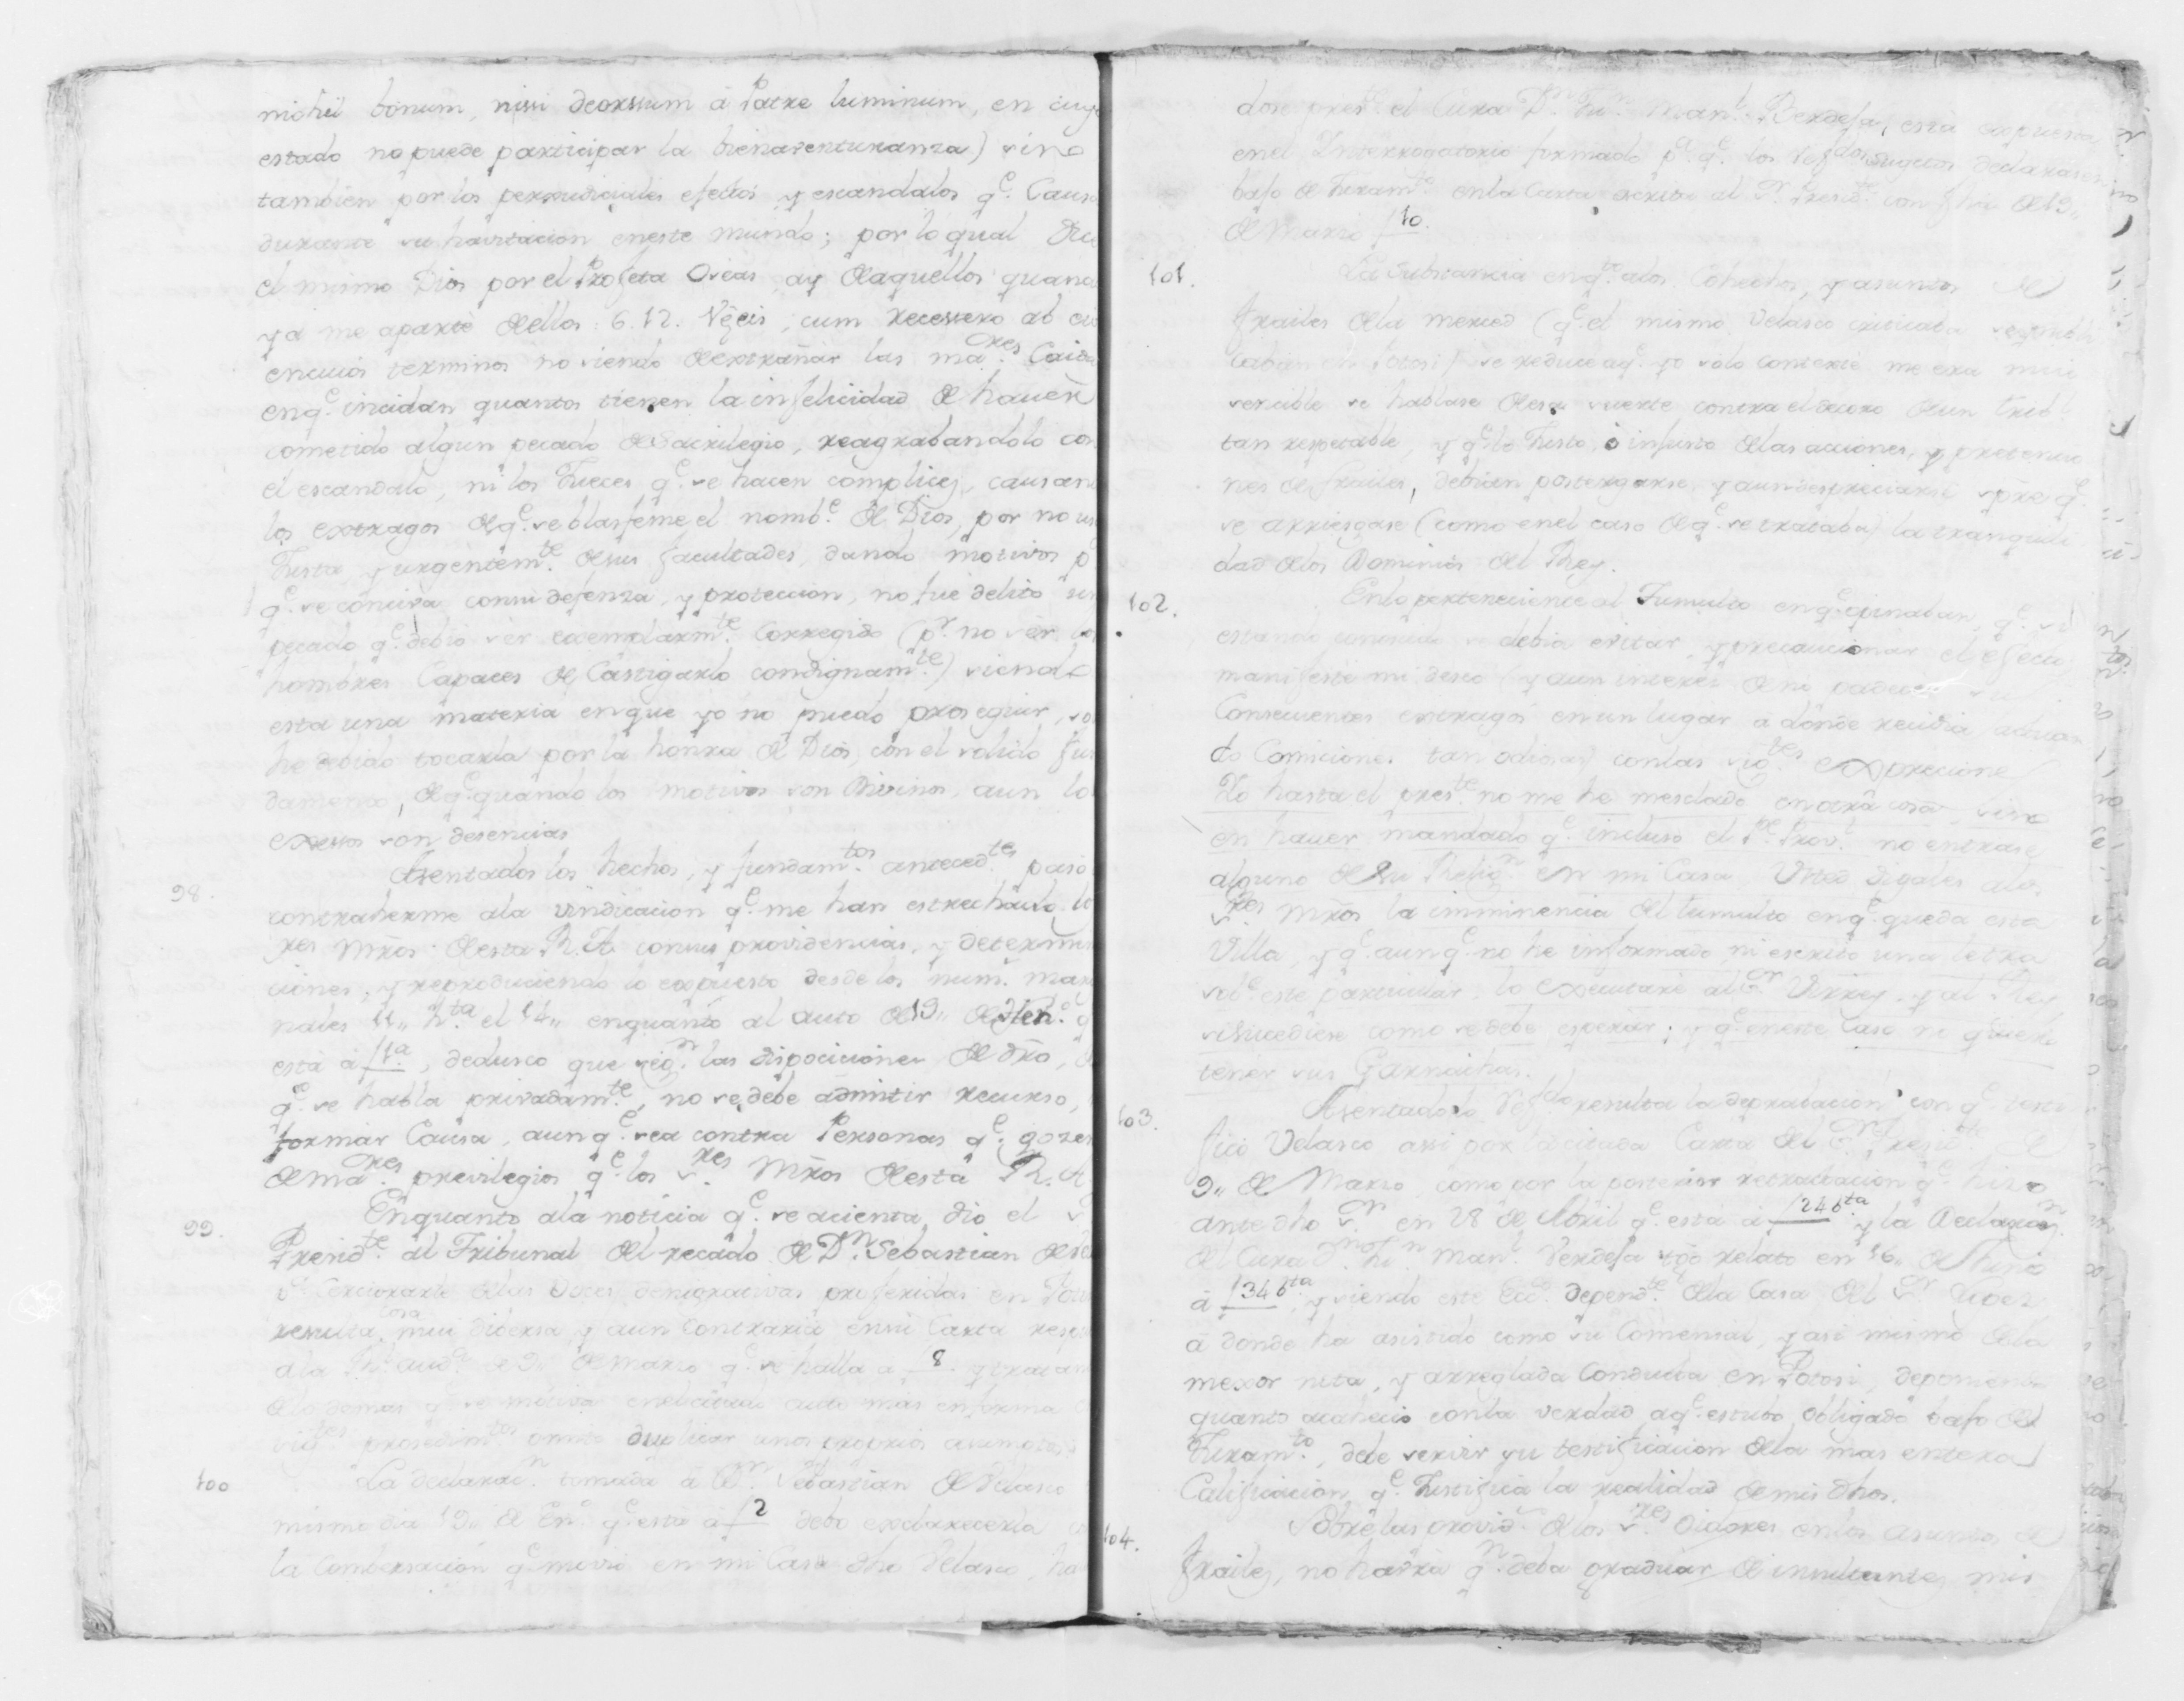 nichil bonum, nissi deorssum á Patre luminum, en cuyo
estado no puede participar la bienaventuranza) sino
tambien por los perxudiciales efectos y escandalos q.e Causa
durante su havitacion en este mundo; por lo qual dice
el mismo Dios por el Profeta Oseas, ay de aquellos quando
ya me aparté de ellos: 6.12. Vę eis, cum recessero ab eis
en cuios terminos no siendo de extrañar las ma.res Caida
en q.e incidan quantos tienen la infelicidad de haver
cometido algun pecado de Sacrilegio, reagrabandolo con
el escandalo, ni los Jueces q.e se hacen complices, causan
los extragos de q.e se blasfeme el nomb.e de Dios, por no us
Justa, y urgentem.te de sus facultades, dando motivos p.
q.e se conciva con su defenza, y proteccion, no fue delito sin
pecado q.e debió ser exemplarm.te Corregido (p.r no ser los
hombres Capaces de Castigarlo condignam.te) siendo
esta una materia en que yo no puedo proseguir, so
he debido tocarla por la honra de Dios, con el solido fun
damento, de q.e quando los motivos son Divinos, aun lo
exesos son desencias
98. Asentados los hechos, y fundam.tos anteced.tes paso
contraherme a la vindicacion q.e me han estrechado lo
res Mrõs de esta R.A. con sus providencias, y determin
ciones, y reproduciendo lo expuesto desde los num.s mar
nales 11,, h.ta el 14,, en quanto al auto de 19,, de En.o q
está á f 1.a, dedusco que seg.n las disposiciones de dr̃o,
q.e se habla privadam.te, no se debe admitir recurso,
formar Causa, aunq.e sea contra Personas q.e gozen
de ma.res previlegios q.e los s.res Mrõs de esta R.A
99. En quanto a la noticia q.e se acienta dio el s.
Presid.te al Tribunal del recado de D.n Sebastian de Ve
Cerciorarle de las voces denigrativas proferidas en Poto
resulta cosa mui diversa, y aun Contraria en su Carta resp
a la R.l aud.a de 9 de Marzo q.e se halla á f 8. y tratan
100 La declarac.n tomada á D.n Sebastian de Velasco
mismo dia 19,, de En.o q.e está á f 2 debo esclarecerla
la Combersacion q.e movió en mi Casa dho Velasco, ha
dose pres.te el Cura D.n Man.l Berdeja, está expuesta
en el Interrogatorio formado p.a q.e los Ref.dos Sugetos declarasen
bajo de Juram.to en la Carta escrita al S.r Presid.te con fha de 19,,
de Marzo f 10.
101. La Substancia en q.to a los Cohechos, y asuntos de
frailes de la merced (q.e el mismo Velasco criticaba se publi
caban en Potosi) se reduce a q.e yo solo contexté me era mui
sencible se hablase de esa suerte contra el decoro de un Tribl
tan respetable, y q.e lo Justo, ó injusto de las acciones, y pretencio
nes de frailes, debian postergarse, y aun despreciarse spr̃e q.e
se arriesgase (como en el caso de q.e se trataba) la tranquili
dad de los Dominios del Rey.
102. En lo perteneciente al Tumulto en q.e opinaban, q.e si
estando conocido se debia evitar, y precaucionar el efecto
manifesté mi deseo (y aun interes de no padecer sus
Consecuentes extragos en un lugar a donde recidia, actuan
do Comiciones tan odiosas) con las sig.tes expreciones
Yo hasta el pres.te no me he mesclado en otra cosa, sino
en haver mandado q.e incluso el P.e Prov.l no entrase
alguno de su Relig.n en mi Casa. Usted digales a los
s.res Mrõs la imminencia del tumulto en q.e queda esta
Villa, y q.e aunq.e no he informado ni escrito una letra
sob.e este particular, lo executaré al s.or Virrey, y al Rey
si sucediese como se debe esperar; y q.e en este caso no quiera
tener sus Garnachas.
103. Asentado lo Ref.do resulta la depravacion con q.e testi
ficó Velasco assi por la citada Carta del S.r Presid.te de
9,, de Marzo, como por la posterior retractacion q.e hizo
ante dho s.or en 28 de Abril q.e está á f 246.ta y la Declarac.n
del Cura D.n Man.l Verdeja sõ relato en 16,, de Junio
á f 346.ta, y siendo este Ecc.o depend.te de la Casa del S.r Lopez
á donde ha asistido como su Comensal, y asi mismo de la
mexor nota, y arreglada Conducta en Potosi, deponiendo
quanto acaheció con la verdad a q.e estubo obligado bajo del
Juram.to, debe servir su testificacion de la mas entera
Calificacion q.e Justifica la realidad de mis dhos.
104. Sobre las provid.s de los s.res Oidores en los asuntos de
frailes, no havrá q.n deba graduar de insultantes mis